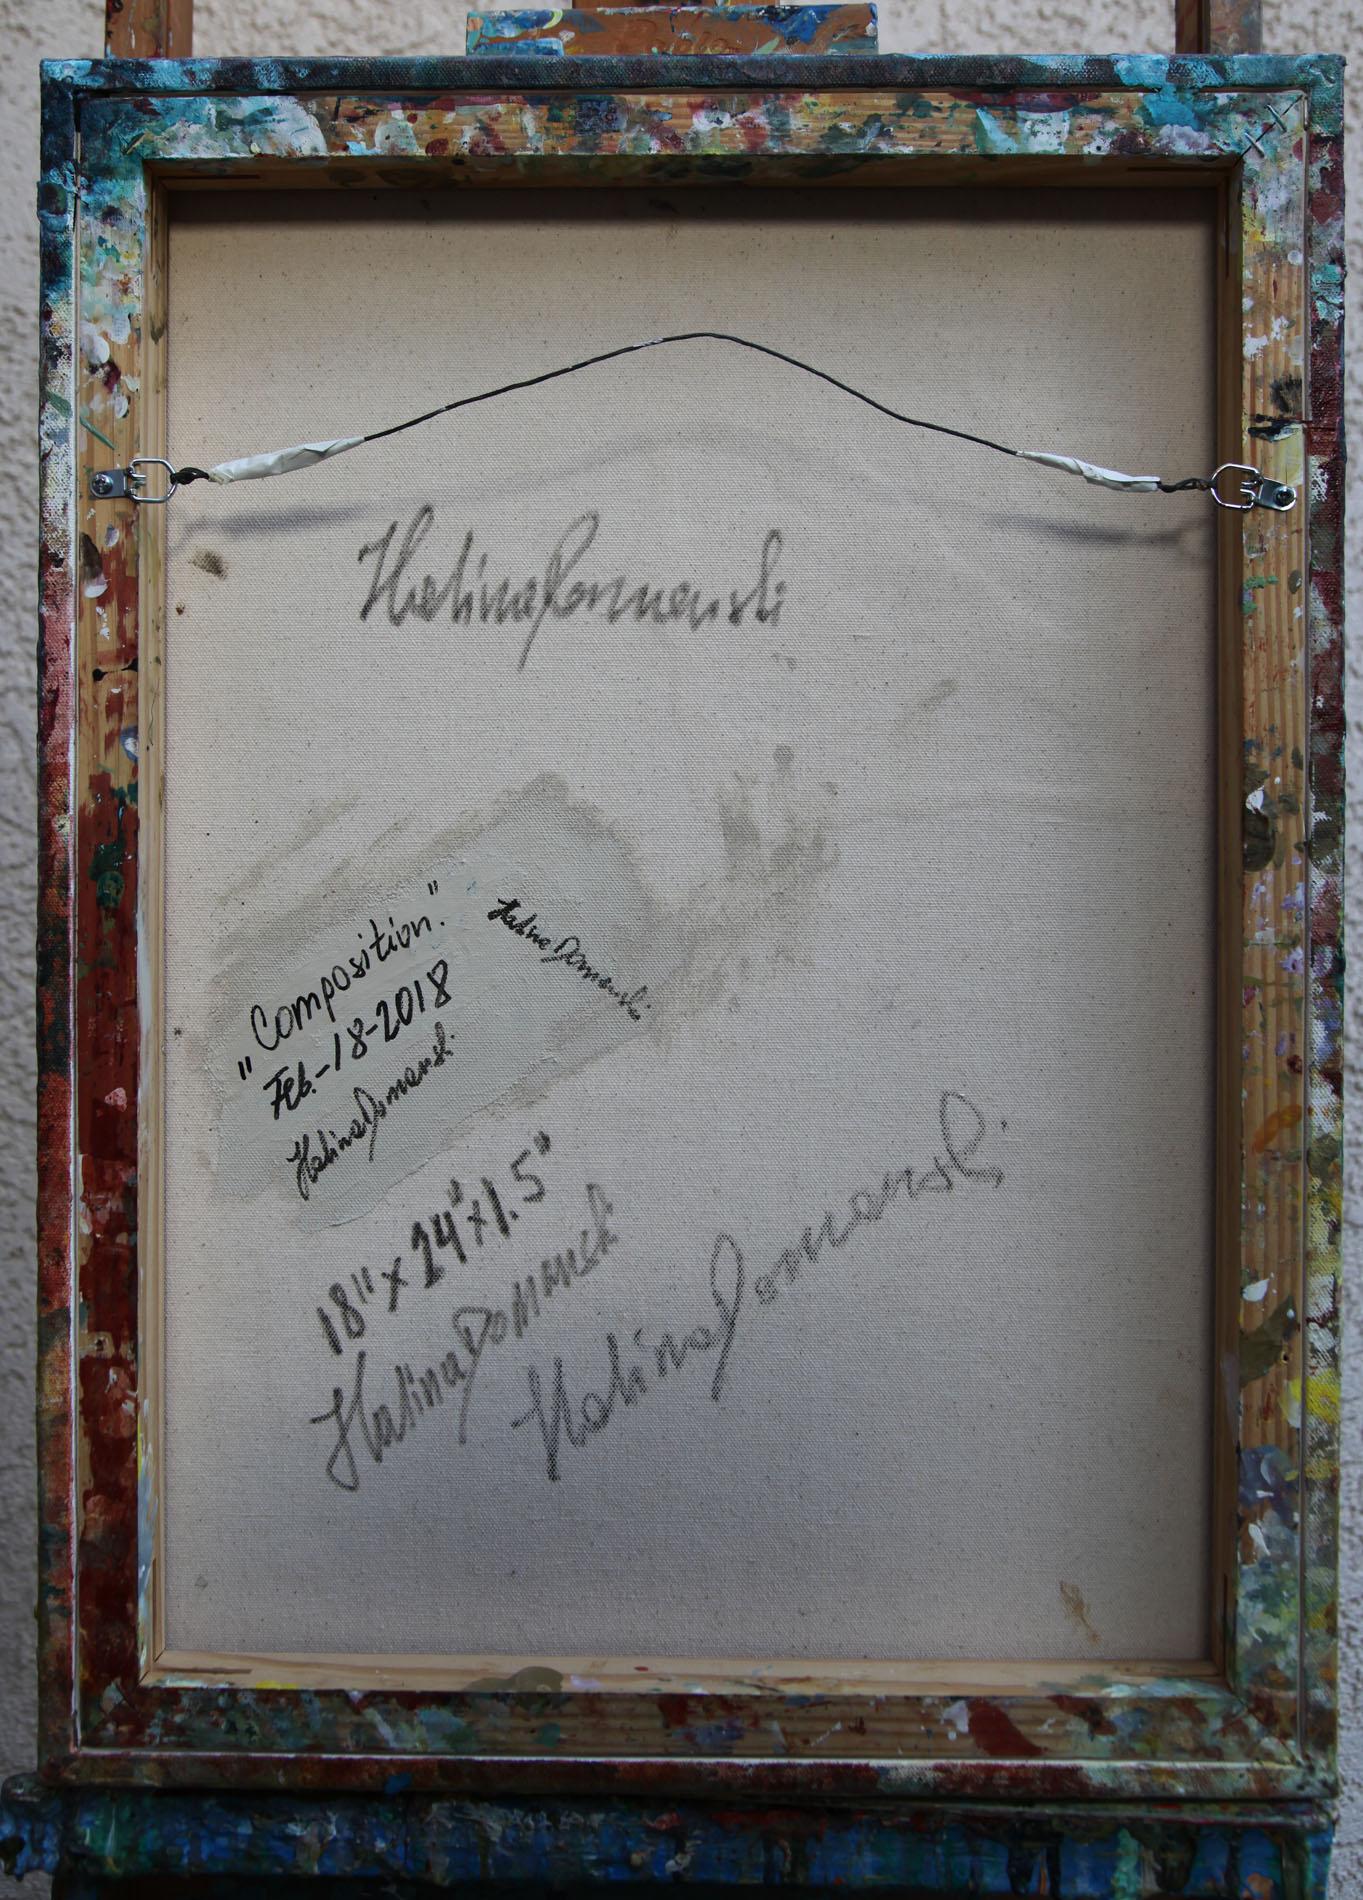 Halina Domanski
"Composition."
Feb.-18-2018
Halina Domanski.
Halina Domanski.
18"x24"x1.5"
Halina Domanski
Halina Domanski.